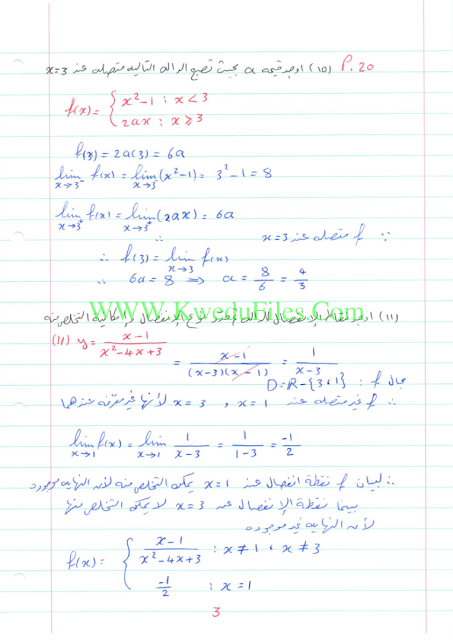 P.20 (10) اوجد قيمه a بحيث تصبح الداله التاليه متصله عند x=3
f(x) = { x²-1 : x < 3
2ax : x ≥ 3
f(3) = 2a(3) = 6a
lim x→3⁻ f(x) = lim x→3 (x²-1) = 3²-1 = 8
lim x→3⁺ f(x) = lim x→3⁺ (2ax) = 6a
∵ f متصله عند x=3
∴ f(3) = lim x→3 f(x)
∴ 6a = 8 ⇒ a = 8/6 = 4/3
(11) اوجد نقاط الانفصال للداله نوع الإنفصال وإمكانية التخلص منه
www.KweduFiles.Com
(11) y = x-1 / x²-4x+3
= x-1 / (x-3)(x-1) = 1 / x-3
مجال f : D=R-{3,1}
∴ f غير متصله عند x=1 , x=3 لأنها غير معرفه عندهما
lim x→1 f(x) = lim x→1 1/x-3 = 1/1-3 = -1/2
∴ لبيان f نقطة انفصال عند x=1 يمكن التخلص منه لأن النهايه موجوده
بينما نقطة الإنفصال عند x=3 لا يمكن التخلص منها
لأن النهايه غير موجوده
f(x) = { x-1 / x²-4x+3 : x≠1 , x≠3
-1/2 : x=1
3